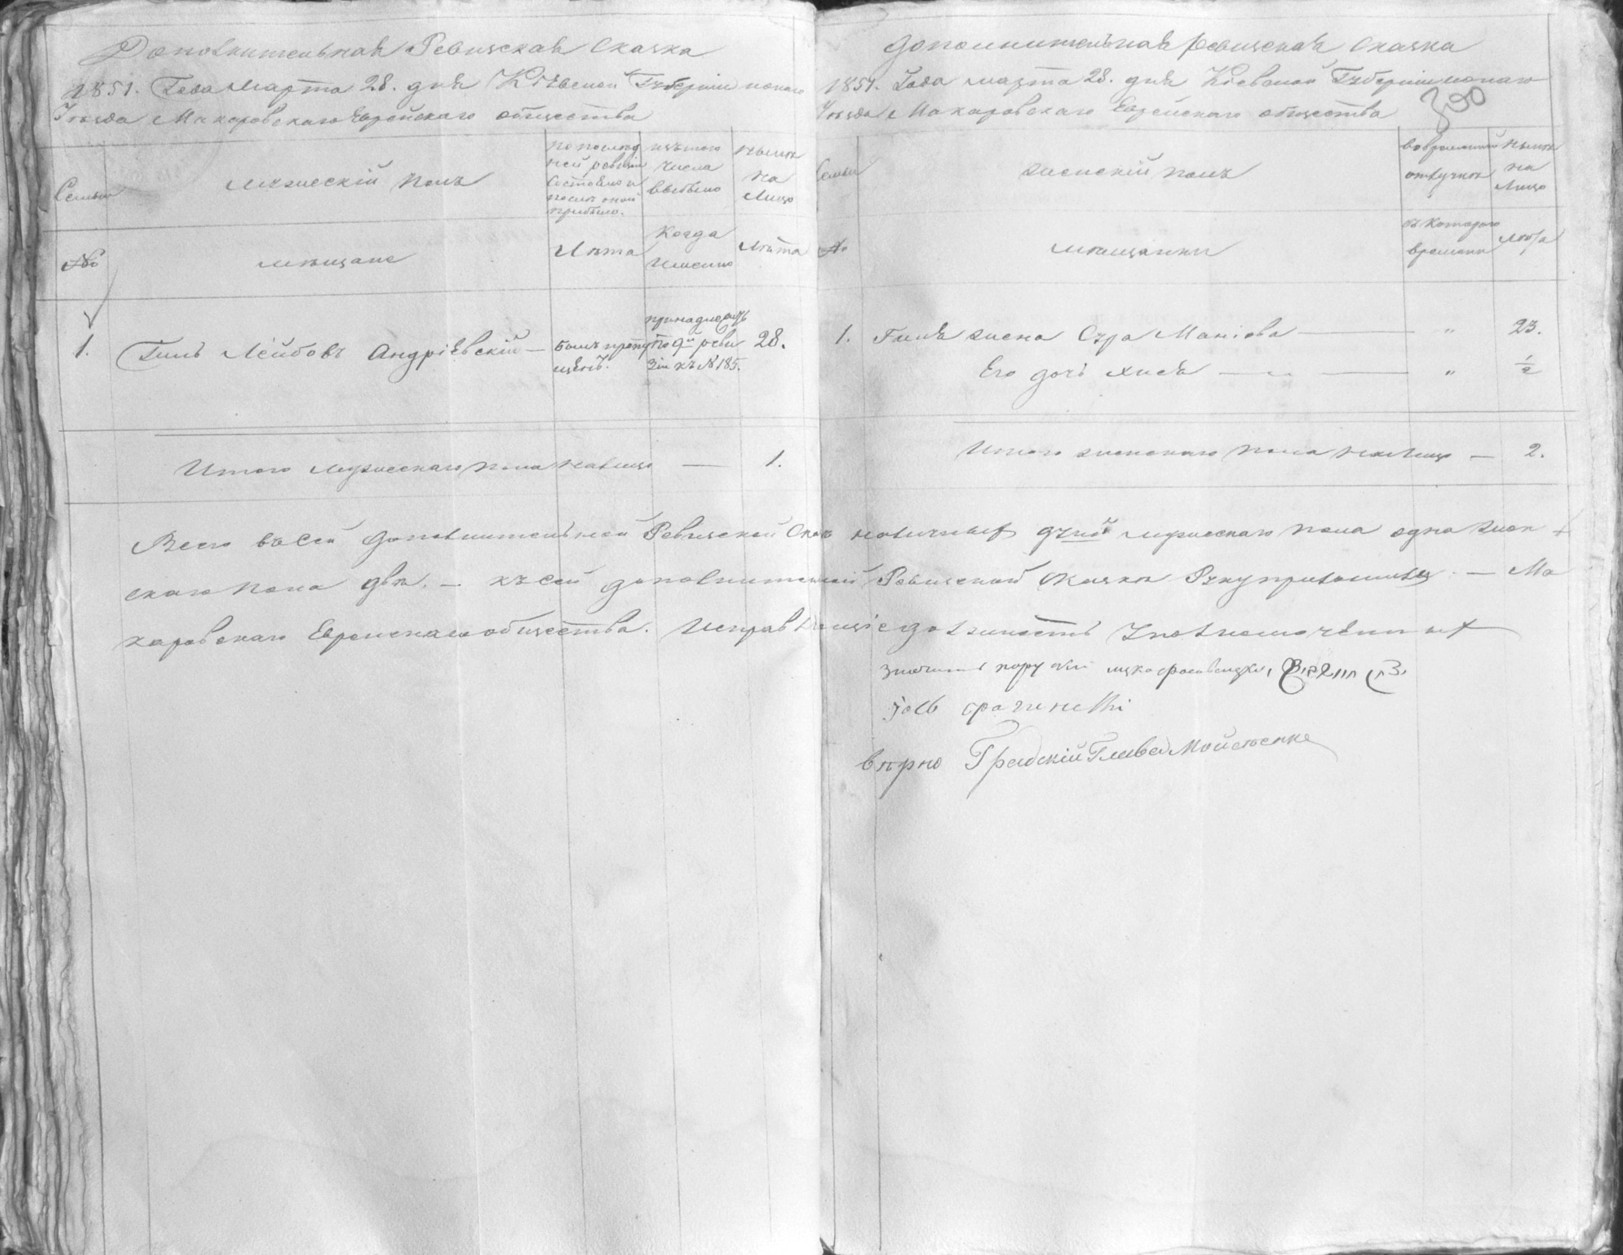 Дополнительная Ревизская сказка
1851. Года Марта 28. дня Кіевской Губерніи
Уезда Макаровскаго Еврейскаго общества
Семьи
мужескій полъ
по послед
ней ревизіи
состояло и
после оной
прибыло.
изътого
числа
выбыло
ныне
на
лицо
№
мещане
Лета
когда
именно
Лета
1.
Гиль Лейбовъ Андріевскій —
былъ проп
принадлежитъ
по 9й реви
зіи къ № 185.
28.
Итого мужескаго пола налицо — 1.
Дополнительная ревизская сказка
1851. Года марта 28. дня Кіевской Губерніи
Уезда Макаровскаго Еврейскаго общества
300
Семьи
женскій полъ
во временной
отлучке
ныне
на
Лицо
№
мещанки
съ котораго
времени
лета
1. Гиля жена Сура Маніова — " 23.
Его дочь Хися — " ½
Итого женскаго пола налицо — 2.
Всего въ сей дополнительной Ревизской Сказке наличныхъ душъ мужескаго пола одна жен
скаго пола две. — къ сей дополнительной Ревизской Сказке Руку приложилъ. — Ма
каровскаго Еврейскаго общества. Исправляющіе должность Уполномоченныхъ
верно Градскій Глава Мойсеенко